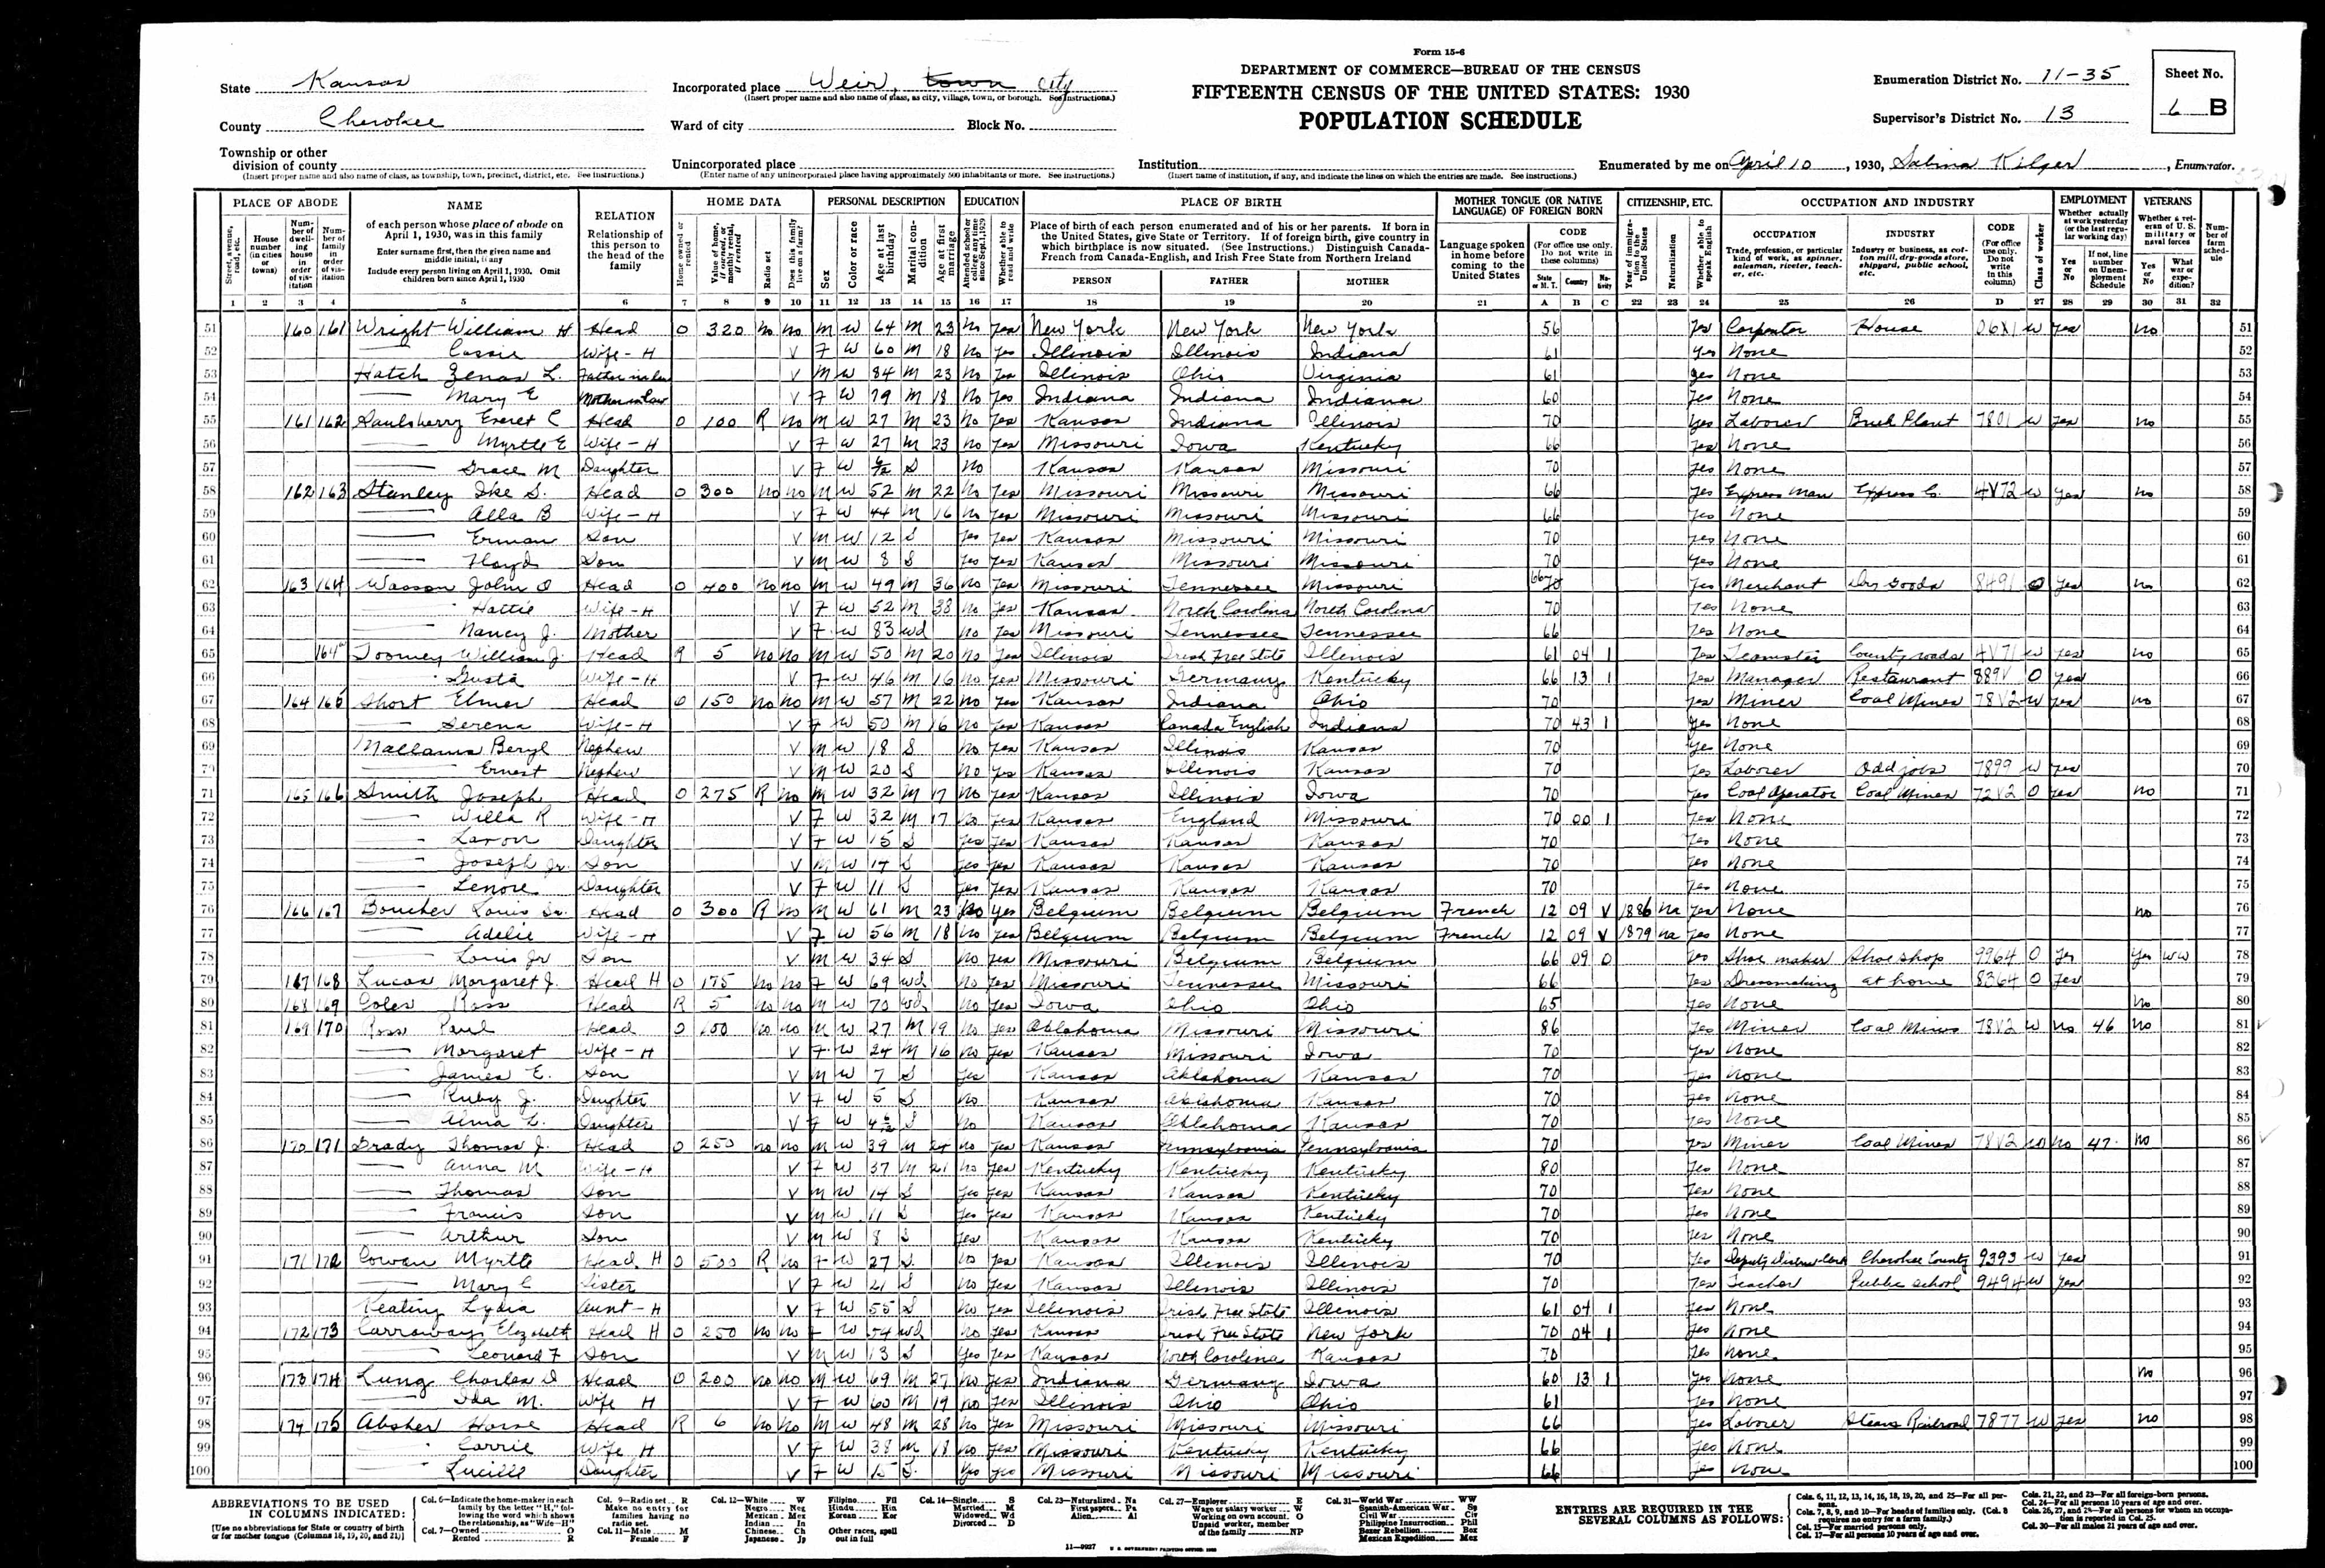 Form 15-6
DEPARTMENT OF COMMERCE—BUREAU OF THE CENSUS
FIFTEENTH CENSUS OF THE UNITED STATES: 1930
POPULATION SCHEDULE
State Kansas
County Cherokee
Township or other division of county
(Insert proper name and also name of class, as township, town, precinct, district, etc. See instructions.)
Incorporated place Weir, town City
(Insert proper name and also name of class, as city, village, town, or borough. See instructions.)
Ward of city Block No.
Unincorporated place
(Enter name of any unincorporated place having approximately 500 inhabitants or more. See instructions.)
Institution
(Insert name of institution, if any, and indicate the lines on which the entries are made. See instructions.)
Enumeration District No. 11-35
Supervisor's District No. 13
Sheet No. 6 B
Enumerated by me on April 10, 1930, Salina Kilger, Enumerator.
PLACE OF ABODE NAME RELATION HOME DATA PERSONAL DESCRIPTION EDUCATION PLACE OF BIRTH MOTHER TONGUE (OR NATIVE LANGUAGE) OF FOREIGN BORN CITIZENSHIP, ETC. OCCUPATION AND INDUSTRY EMPLOYMENT VETERANS
51 160 161 Wright William H Head O 320 No No M W 64 M 23 No Yes New York New York New York 56 Yes Carpenter House 06X1 W Yes No 51
52 Cassie Wife-H V F W 60 M 18 No Yes Illinois Illinois Indiana 61 Yes None 52
53 Hatch Zenas L. Father in law V M W 84 M 23 No Yes Illinois Ohio Virginia 61 Yes None 53
54 Mary E Mother in law V F W 79 M 18 No Yes Indiana Indiana Indiana 60 Yes None 54
55 161 162 Saulsberry Everet C Head O 100 R No M W 27 M 23 No Yes Kansas Indiana Illinois 70 Yes Laborer Brick Plant 7801 W Yes No 55
56 Myrtle E Wife-H V F W 27 M 23 No Yes Missouri Iowa Kentucky 66 Yes None 56
57 Grace M Daughter V F W 6/12 S No Kansas Kansas Missouri 70 Yes None 57
58 162 163 Stanley Ike S. Head O 300 No No M W 52 M 22 No Yes Missouri Missouri Missouri 66 Yes Express Man Express Co. 4V72 W Yes No 58
59 Alla B Wife-H V F W 44 M 16 No Yes Missouri Missouri Missouri 66 Yes None 59
60 Erman Son V M W 12 S Yes Yes Kansas Missouri Missouri 70 Yes None 60
61 Floyd Son V M W 8 S Yes Yes Kansas Missouri Missouri 70 Yes None 61
62 163 164 Wasson John O Head O 400 No No M W 49 M 36 No Yes Missouri Tennessee Missouri 66 70 Yes Merchant Dry Goods 8491 O Yes No 62
63 Hattie Wife-H V F W 52 M 38 No Yes Kansas North Carolina North Carolina 70 Yes None 63
64 Nancy J. Mother V F W 83 Wd No Yes Missouri Tennessee Tennessee 66 Yes None 64
65 164 Toomey William J. Head R 5 No No M W 50 M 20 No Yes Illinois Irish Free State Illinois 61 04 1 Yes Teamster County roads 4V71 W Yes No 65
66 Gusta Wife-H V F W 46 M 16 No Yes Missouri Germany Kentucky 66 13 1 Yes Manager Restaurant 889V O Yes 66
67 164 165 Short Elmer Head O 150 No No M W 57 M 22 No Yes Kansas Indiana Ohio 70 Yes Miner Coal Mines 78V2 W Yes No 67
68 Serena Wife-H V F W 50 M 16 No Yes Kansas Canada English Indiana 70 43 1 Yes None 68
69 Mallams Beryl Nephew V M W 18 S No Yes Kansas Illinois Kansas 70 Yes None 69
70 Ernest Nephew V M W 20 S No Yes Kansas Illinois Kansas 70 Yes Laborer Odd jobs 7899 W Yes 70
71 165 166 Smith Joseph Head O 275 R No M W 32 M 17 No Yes Kansas Illinois Iowa 70 Yes Coal Operator Coal Mines 72V2 O Yes No 71
72 Willa R Wife-H V F W 32 M 17 No Yes Kansas England Missouri 70 00 1 Yes None 72
73 Laron Daughter V F W 15 S Yes Yes Kansas Kansas Kansas 70 Yes None 73
74 Joseph Jr. Son V M W 17 S Yes Yes Kansas Kansas Kansas 70 Yes None 74
75 Lenore Daughter V F W 11 S Yes Yes Kansas Kansas Kansas 70 Yes None 75
76 166 167 Boucher Louis Sr. Head O 300 R No M W 61 M 23 No Yes Belgium Belgium Belgium French 12 09 V 1886 Na Yes None No 76
77 Adelie Wife-H V F W 56 M 18 No Yes Belgium Belgium Belgium French 12 09 V 1879 Na Yes None 77
78 Louis Jr Son V M W 34 S No Yes Missouri Belgium Belgium 66 09 0 Yes Shoe maker Shoe shop 9964 O Yes Yes WW 78
79 167 168 Lucas Margaret J. Head H O 175 No No F W 69 Wd No Yes Missouri Tennessee Missouri 66 Yes Dressmaking at home 8364 O Yes 79
80 168 169 Coles Ross Head R 5 No No M W 70 Wd No Yes Iowa Ohio Ohio 65 Yes None No 80
81 169 170 Ross Paul Head O 100 No No M W 27 M 19 No Yes Oklahoma Missouri Missouri 86 Yes Miner Coal Mines 78V2 W No 46 No 81
82 Margaret Wife-H V F W 24 M 16 No Yes Kansas Missouri Iowa 70 Yes None 82
83 James E. Son V M W 7 S Yes Kansas Oklahoma Kansas 70 Yes None 83
84 Ruby J. Daughter V F W 5 S No Kansas Oklahoma Kansas 70 Yes None 84
85 Alma L. Daughter V F W S No Kansas Oklahoma Kansas 70 Yes None 85
86 170 171 Brady Thomas J. Head O 250 No No M W 39 M 24 No Yes Kansas Pennsylvania Pennsylvania 70 Yes Miner Coal Mines 78V2 W No 47 No 86
87 Anna M Wife-H V F W 37 M 21 No Yes Kentucky Kentucky Kentucky 80 Yes None 87
88 Thomas Son V M W 14 S Yes Yes Kansas Kansas Kentucky 70 Yes None 88
89 Francis Son V M W 11 S Yes Yes Kansas Kansas Kentucky 70 Yes None 89
90 Arthur Son V M W 8 S Yes Kansas Kansas Kentucky 70 Yes None 90
91 171 172 Cowan Myrtle Head H O 500 R No F W 27 S No Yes Kansas Illinois Illinois 70 Yes Deputy Clerk Cherokee County 9393 W Yes 91
92 Mary C Sister V F W 21 S No Yes Kansas Illinois Illinois 70 Yes Teacher Public school 9494 W Yes 92
93 Keating Lydia Aunt-H V F W 55 S No Yes Illinois Irish Free State Illinois 61 04 1 Yes None 93
94 172 173 Carraways Elizabeth Head H O 250 No No F W 54 Wd No Yes Kansas Irish Free State New York 70 04 1 Yes None 94
95 Leonard F Son V M W 13 S Yes Yes Kansas North Carolina Kansas 70 Yes None 95
96 173 174 Lung Charles D Head O 200 No No M W 69 M 27 No Yes Indiana Germany Iowa 60 13 1 Yes None No 96
97 Ida M. Wife H V F W 60 M 19 No Yes Illinois Ohio Ohio 61 Yes None 97
98 174 175 Absher Head R 6 No No M W 48 M 28 No Yes Missouri Missouri Missouri 66 Yes Laborer Steam Railroad 7877 W Yes No 98
99 Carrie Wife H V F W 38 M 18 No Yes Missouri Kentucky Kentucky 66 Yes None 99
100 Lucille Daughter V F W 15 S Yes Yes Missouri Missouri Missouri 66 Yes None 100
ABBREVIATIONS TO BE USED IN COLUMNS INDICATED:
[Use no abbreviations for State or country of birth or for mother tongue (Columns 18, 19, 20, and 21)]
ENTRIES ARE REQUIRED IN THE SEVERAL COLUMNS AS FOLLOWS:
11—9927